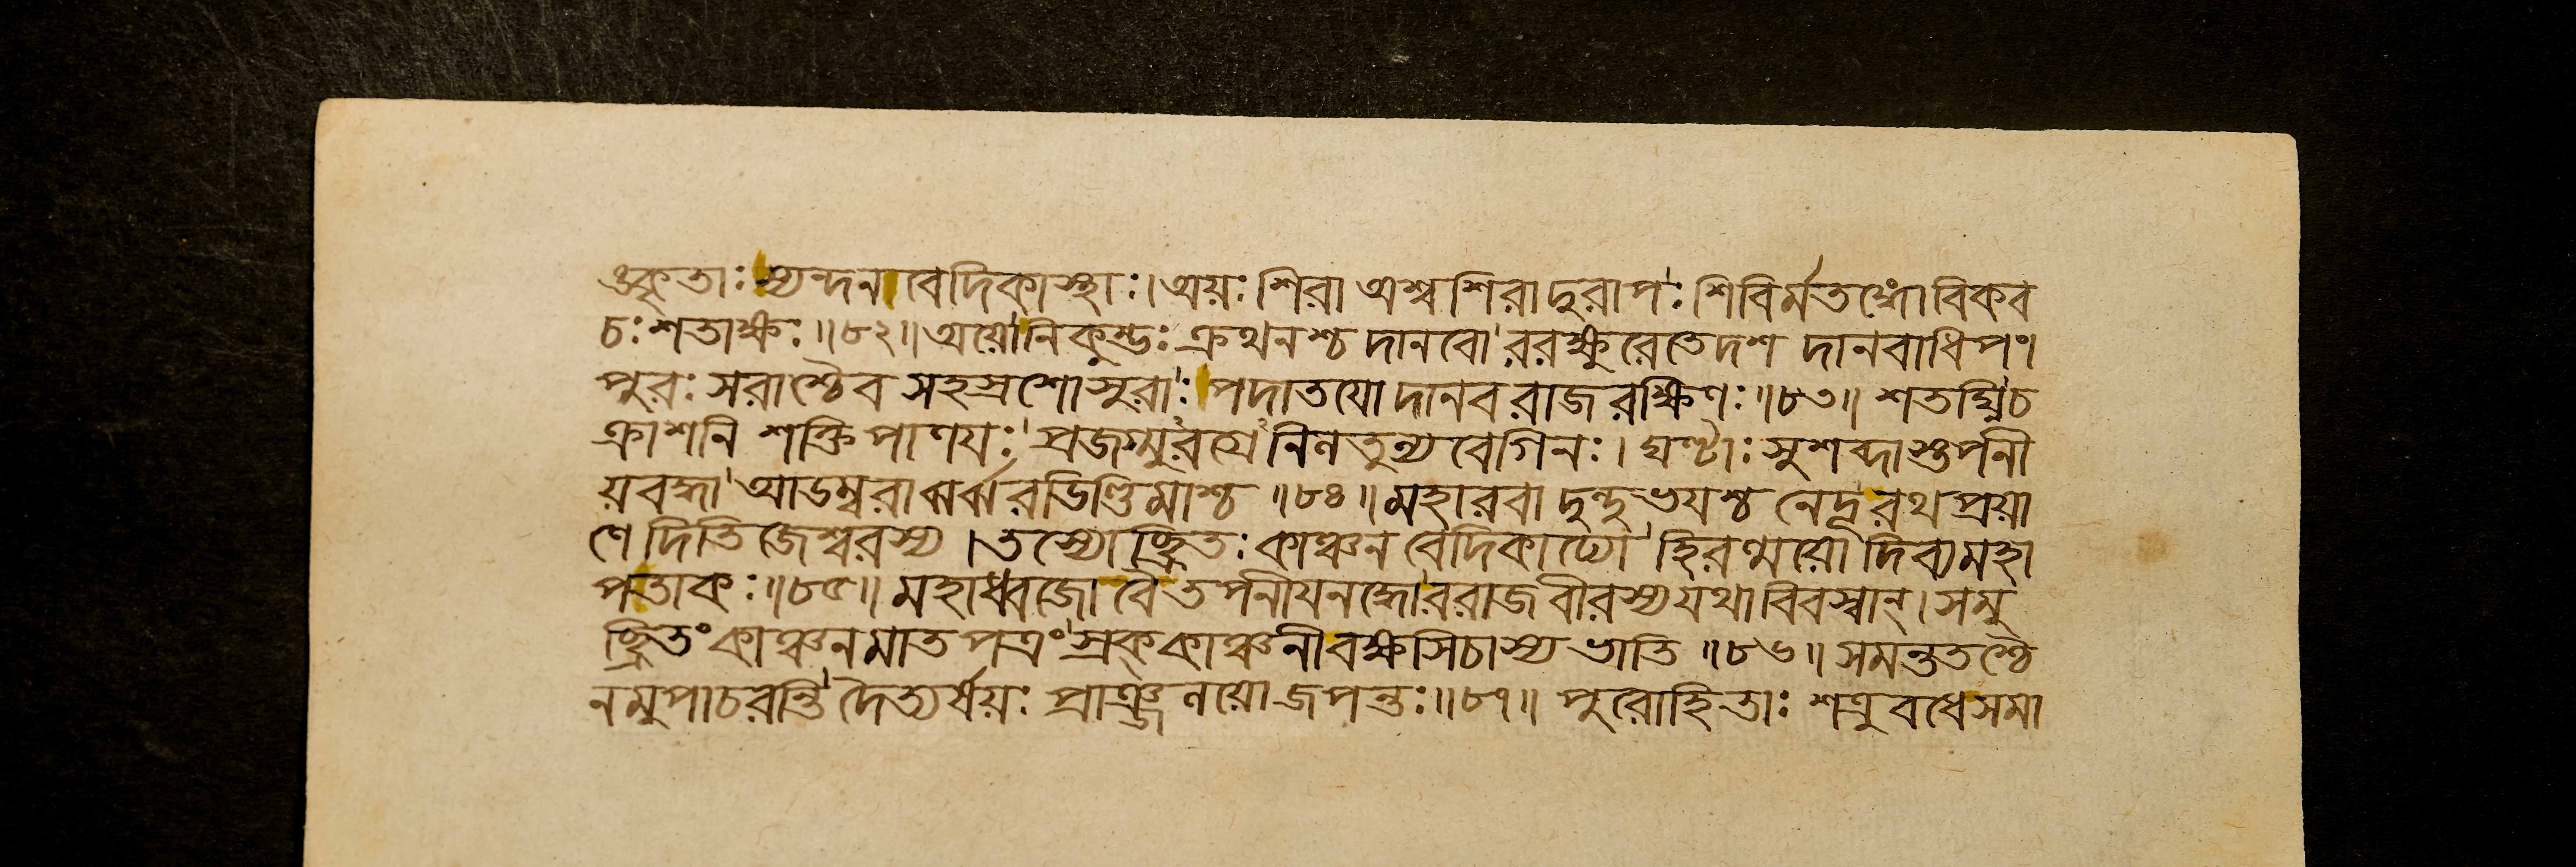 ণ্ডকৃতাঃ স্যন্দন বেদিকাস্থাঃ। অয়ঃ শিরা অশ্বশিরাদুরাপঃ শিবির্মতঙ্গোবিকব
চঃ শতাক্ষঃ ॥৮২॥ অয়োনিকুম্ভঃ ক্রথনশ্চ দানবো ররক্ষুরেতেদশ দানবাধিপং।
পুরঃ সরাশ্চৈব সহস্রশোসুরাঃ পদাতযো দানবরাজরক্ষিণঃ ॥৮৩॥ শতঘ্নিচ
ক্রাশনি শক্তিপাণযঃ প্রজগ্মুরগ্রে নিলতুল্যবেগিনঃ। ঘণ্টাঃ সুশব্দাস্তপনী
য়বদ্ধা আডম্বরাঝর্ঝরডিণ্ডিমাশ্চ ॥৮৪॥ মহারবা দুন্দুভযশ্চ নেদূ রথপ্রয়া
ণে দিতিজেশ্বরস্য। তস্যোচ্ছ্রিতঃ কাঞ্চনবেদিকাঢ্যো হিরণ্ময়ো দিব্যমহা
পতাকঃ ॥৮৫॥ মহাধ্বজো বৈ তপনীযনদ্ধোররাজ বীরস্য যথা বিবস্বান্। সমু
চ্ছ্রিতং কাঞ্চনমাতপত্রং স্রক্ কাঞ্চনী বক্ষসি চাস্য ভাতি ॥৮৬॥ সমন্ততশ্চৈ
নমুপাচরন্তি দৈত্যর্ষয়ঃ প্রাঞ্জলয়ো জপন্তঃ ॥৮৭॥ পুরোহিতাঃ শত্রুবধেসমা